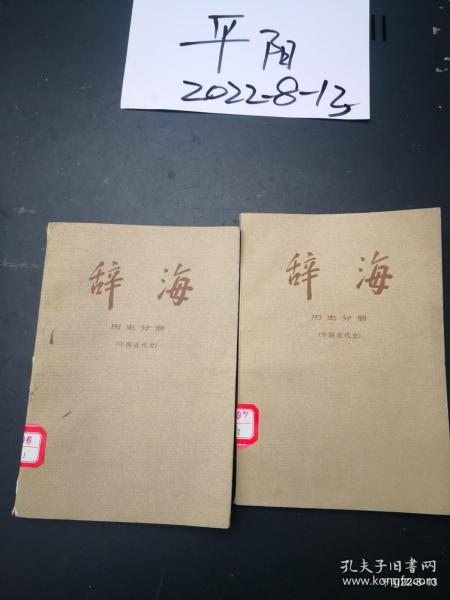 平阳
2022-8-13
辞海
历史分册
(中国近代史)
辞海
历史分册
(中国近代史)
06
1
07
2
孔夫子旧书网
www.kongfz.com
22-8-13